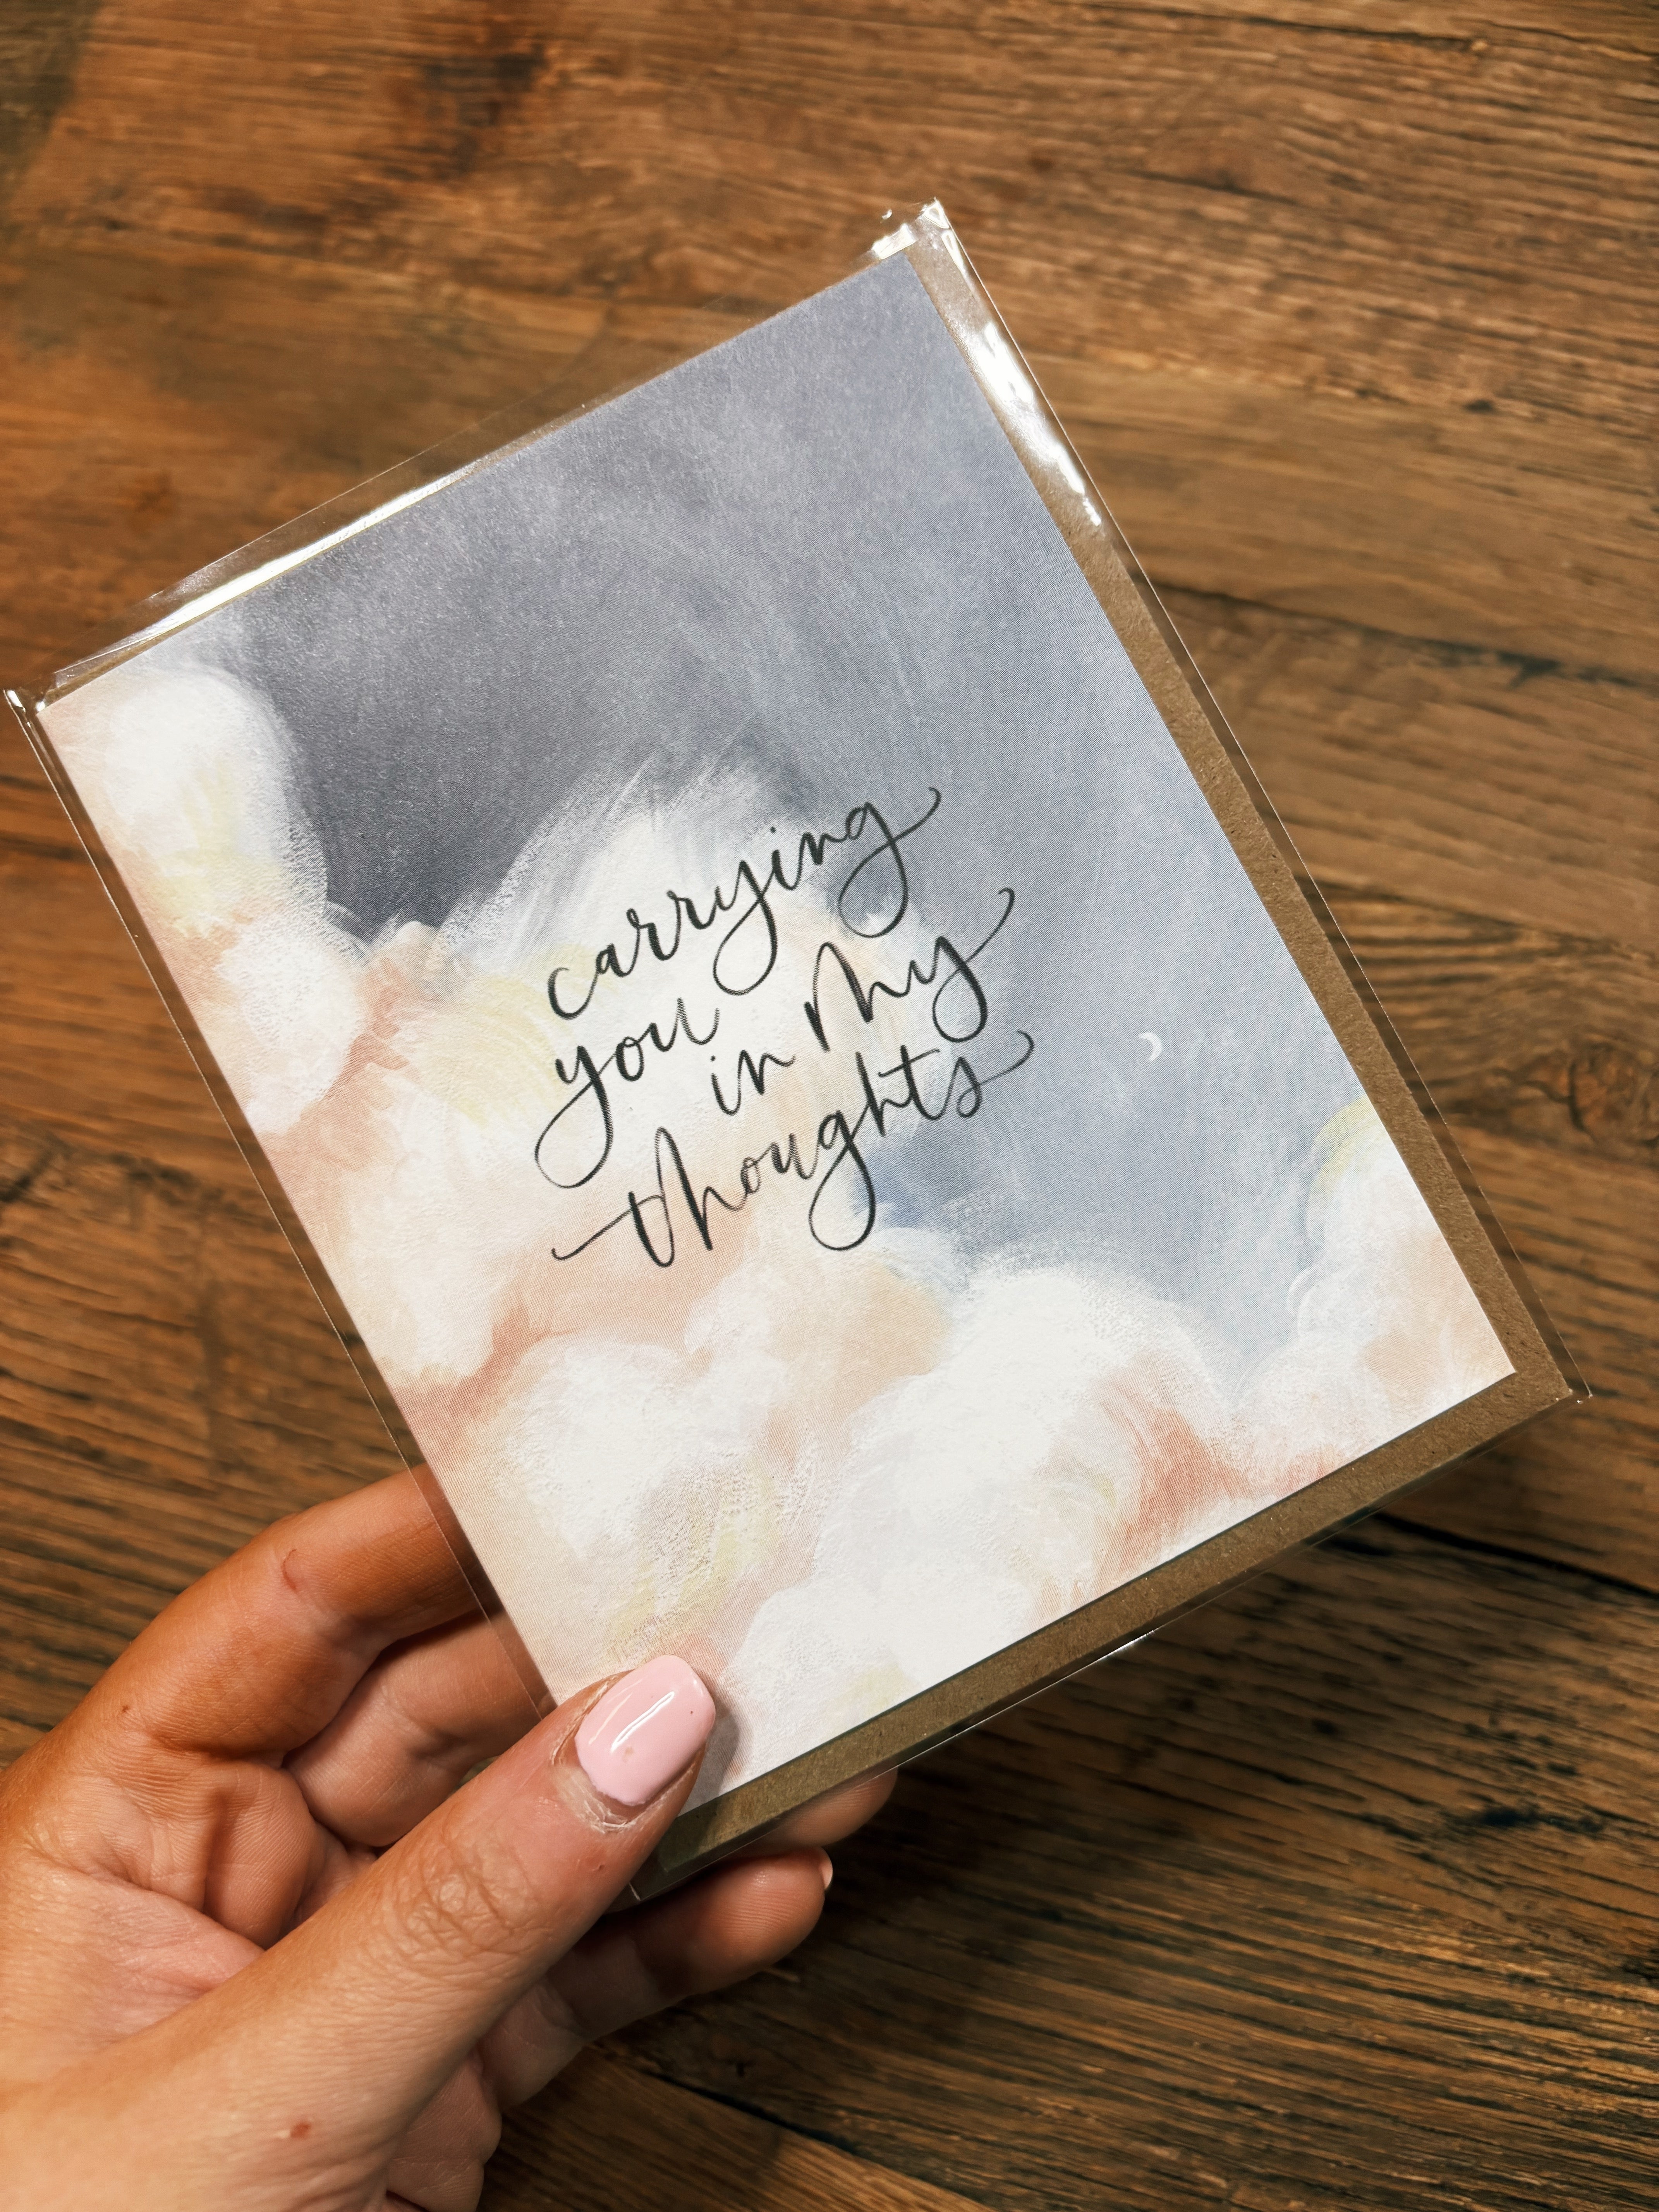 carrying
you in my
thoughts